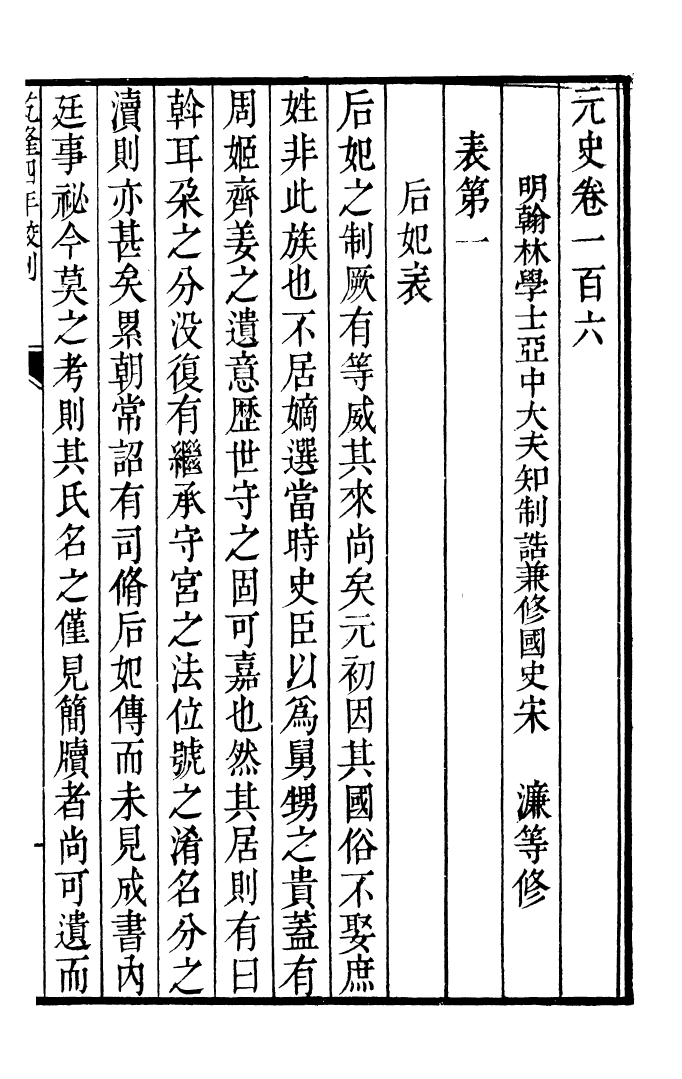 元史卷一百六
明翰林學士亞中大夫知制誥兼修國史宋　濂等修
表第一
后妃表
后妃之制厥有等威其來尚矣元初因其國俗不娶庶
姓非此族也不居嫡選當時史臣以爲舅甥之貴蓋有
周姬齊姜之遺意歷世守之固可嘉也然其居則有曰
斡耳朶之分没復有繼承守宮之法位號之淆名分之
瀆則亦甚矣累朝常詔有司脩后妃傳而未見成書內
廷事祕今莫之考則其氏名之僅見簡牘者尚可遺而
乾隆四年校刊